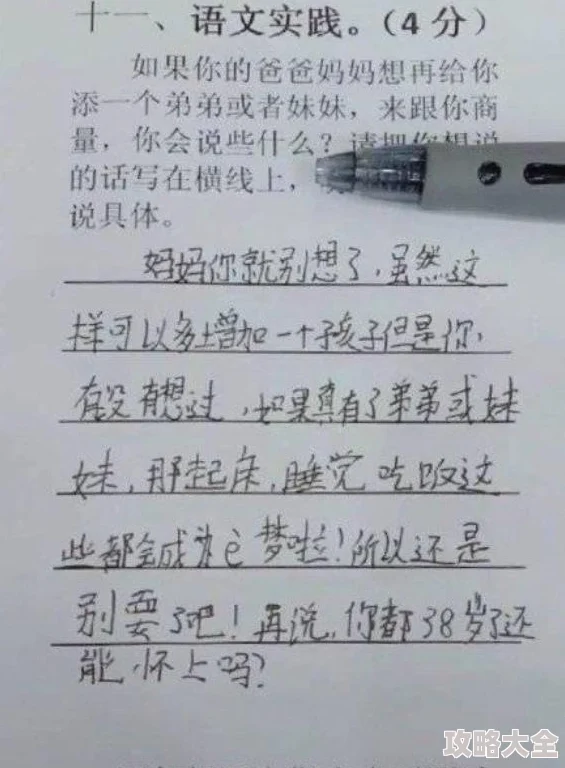 十一、语文实践。(4分)
如果你的爸爸妈妈想再给你
添一个弟弟或者妹妹，来跟你商
量，你会说些什么？请把你想说
的话写在横线上，
说具体。
妈妈你就别想了，虽然这
样可以多增加一个孩子但是你，
有没有想过，如果真有了弟弟或妹
妹，那起床，睡觉吃饭这
些都会成为 梦啦！所以还是
别要了吧！再说，你都38岁了还
能怀上吗？
攻略大全